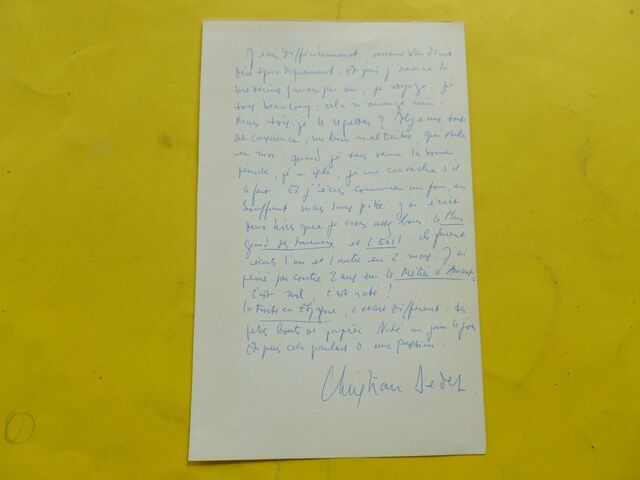 J'écris difficilement, mieux vaudrait
dire sporadiquement. Et puis j'exerce la
médecine 9 mois par an, je voyage, je
lis beaucoup. Cela n'arrange rien.
Mais dois-je le regretter ? Il y a une sorte
de conscience, un bien mal traitée, qui veille
en moi : quand je sens venir la bonne
période, je m'isole, je me cravache s'il
le faut. Et j'écris comme un fou, en
souffrant mais sans pitié. J'ai écrit
deux livres que je crois assez bons : le Plus
grand des taureaux et l'Exil : ils furent
écrits l'un et l'autre en 2 mois. J'ai
peiné par contre 2 ans sur le Métier d'Amant :
c'est nul, c'est raté !
La Fuite en Espagne, c'était différent. Des
petits bouts de papier. Noté au jour le jour
Et puis cela parlait d'une passion.
Christian Dedet